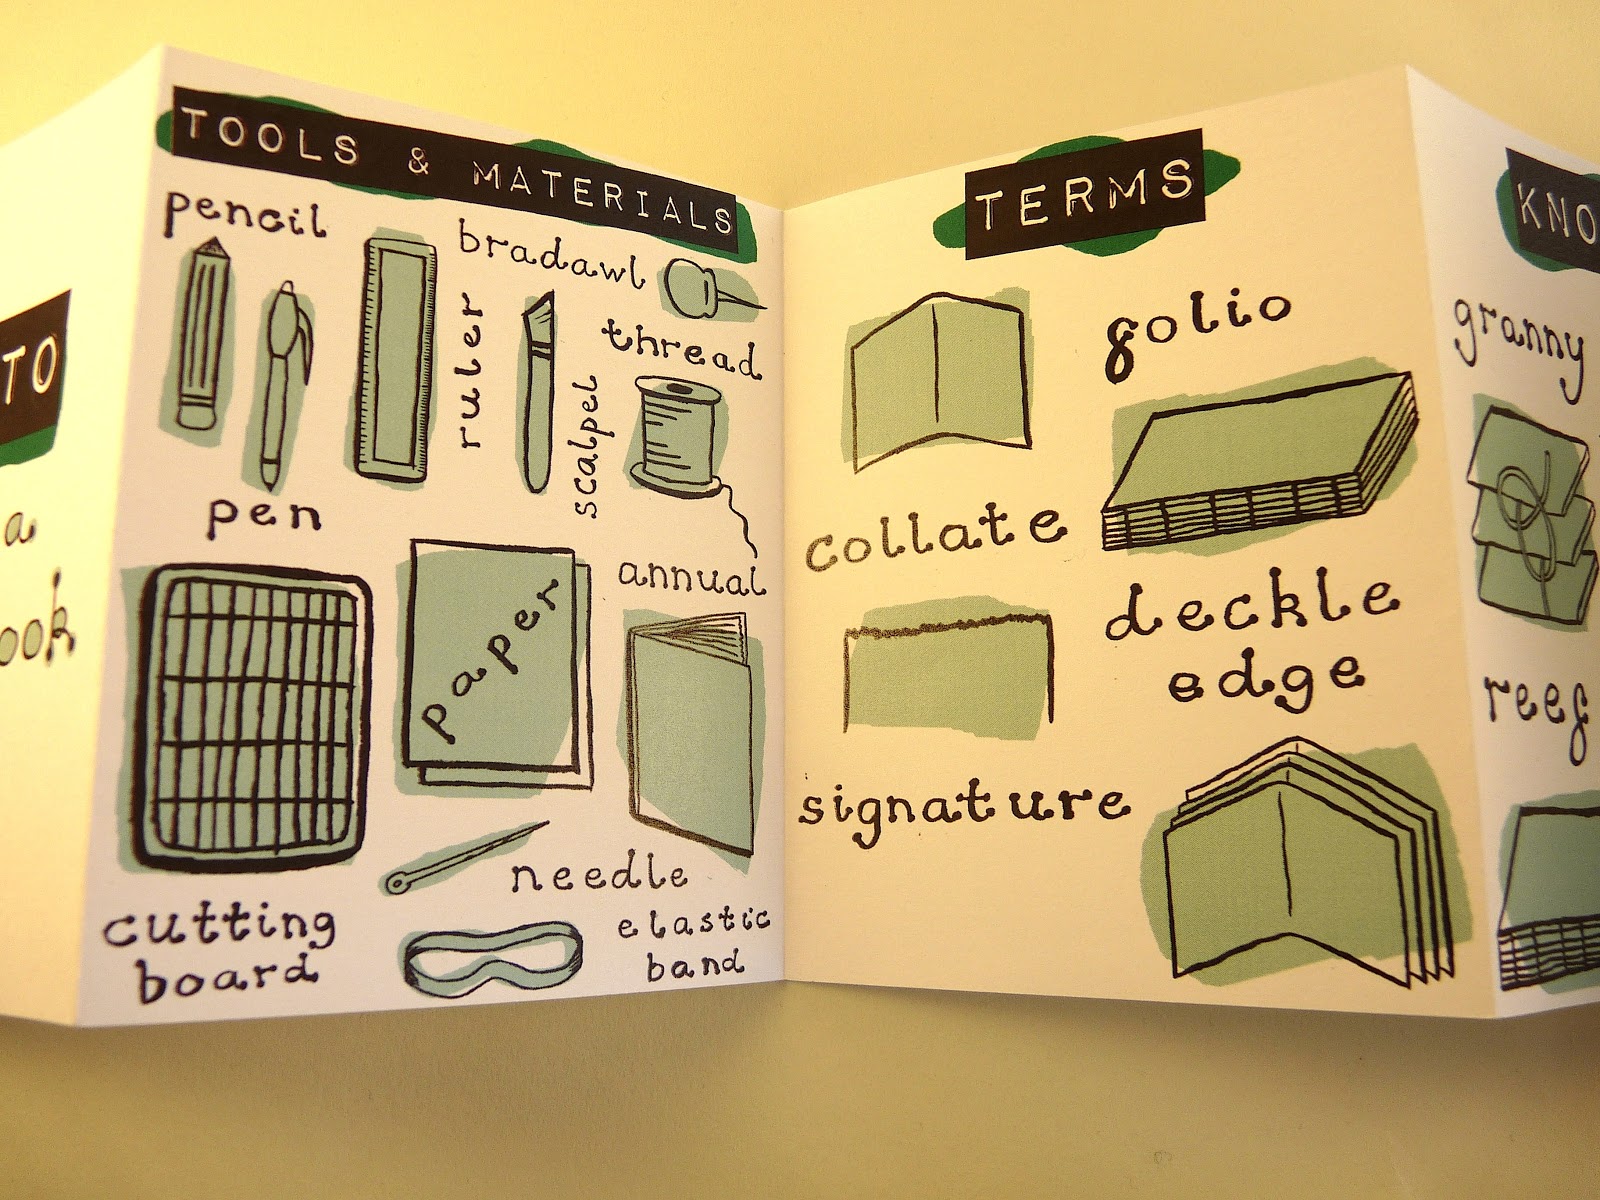 TO
a
ook
TOOLS & MATERIALS
pencil
bradawl
ruler
thread
scalpel
pen
paper
annual
needle
cutting
board
elastic
band
TERMS
folio
collate
deckle
edge
signature
KNO
granny
reef